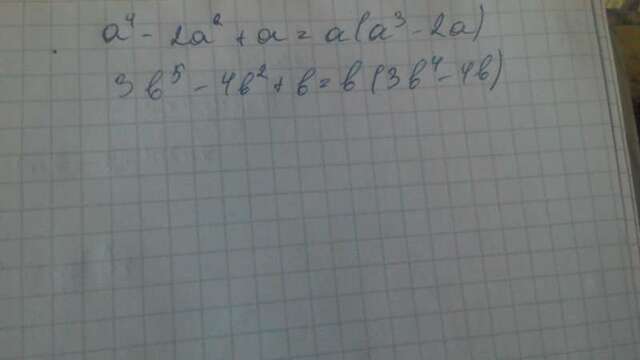 a⁴ - 2a² + a = a(a³ - 2a)
3b⁵ - 4b² + b = b(3b⁴ - 4b)